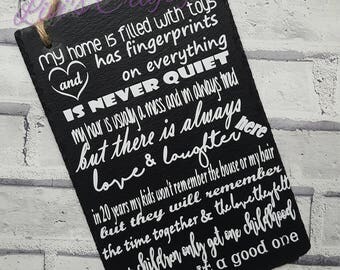 my home is filled with toys
has fingerprints
and
on everything
IS NEVER QUIET
my hair is usually a mess and im always tired
but there is always
love & laughter here
in 20 years my kids won't remember the house or my hair
but they will remember
the time together & the love they felt
children only get one childhood
it a good one